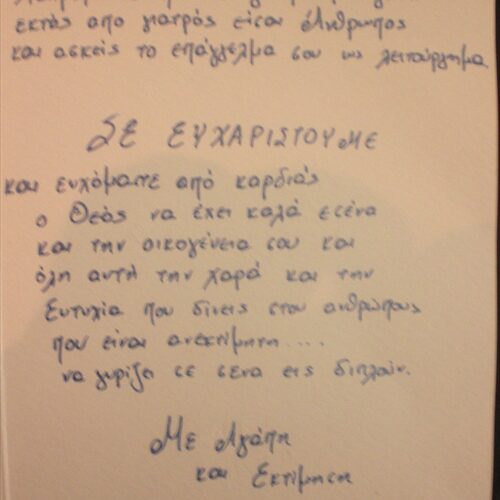 εκτός από γιατρός είσαι Άνθρωπος
και ασκείς το επάγγελμα σου ως λειτούργημα
ΣΕ ΕΥΧΑΡΙΣΤΟΥΜΕ
και ευχόμαστε από καρδιάς
ο Θεός να έχει καλά εσένα
και την οικογένεια σου και
όλη αυτή την χαρά και την
Ευτυχία που δίνεις στου ανθρώπους
που είναι ανεκτίμητη....
να γυρίζει σε σένα εις διπλούν.
Με Αγάπη
και Εκτίμηση